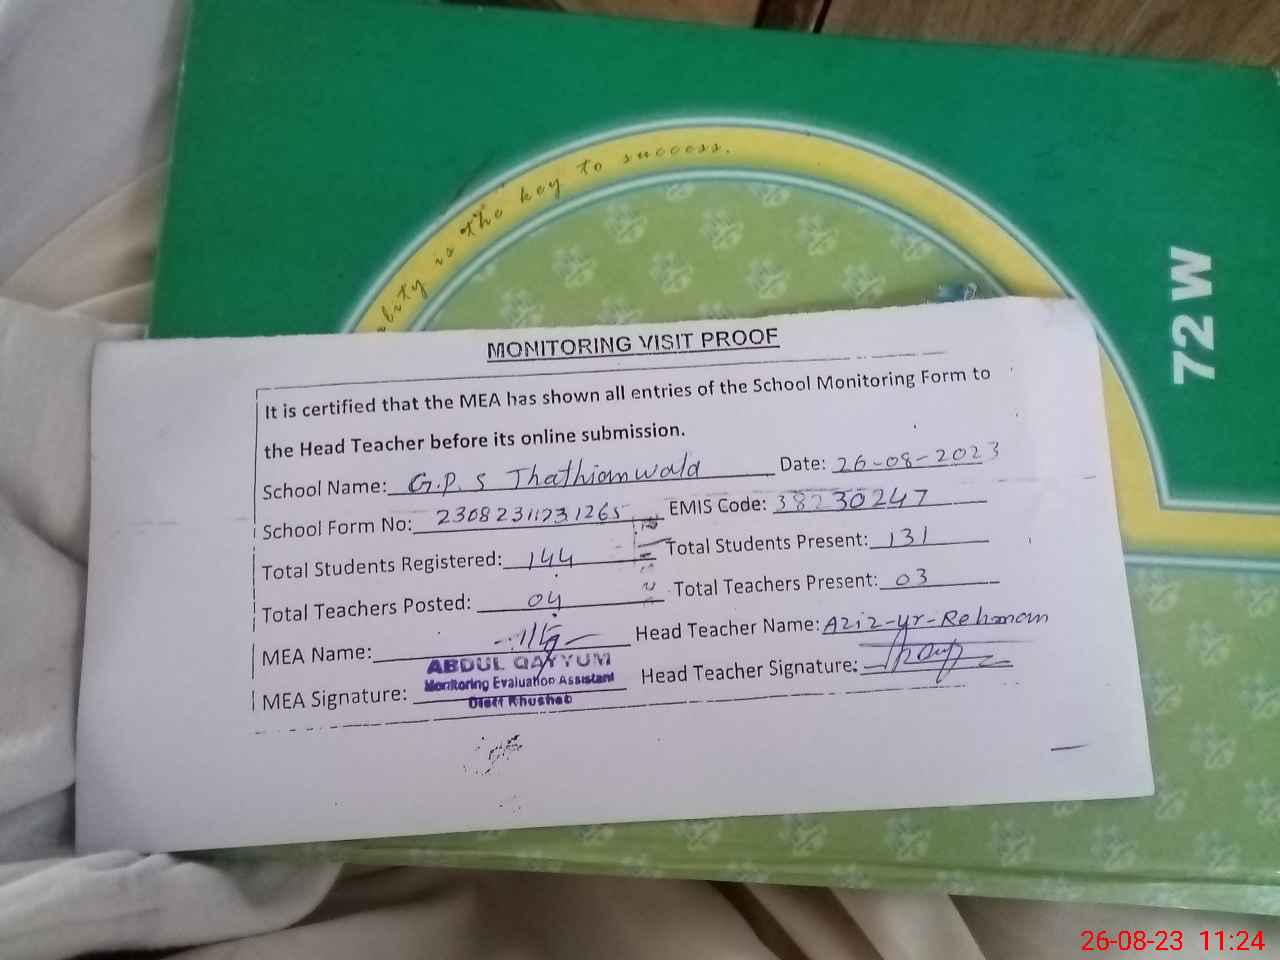 ablity is the key to success.
72 W
MONITORING VISIT PROOF
It is certified that the MEA has shown all entries of the School Monitoring Form to
the Head Teacher before its online submission.
School Name: G.P.S Thathianwala Date: 26-08-2023
School Form No: 23082311231265 EMIS Code: 38230247
Total Students Registered: 144 Total Students Present: 131
Total Teachers Posted: 04 Total Teachers Present: 03
MEA Name: Head Teacher Name: Aziz-ur-Rehman
ABDUL QAYYUM
MEA Signature: Monitoring Evaluation Assistant Head Teacher Signature:
Distt Khushab
26-08-23 11:24